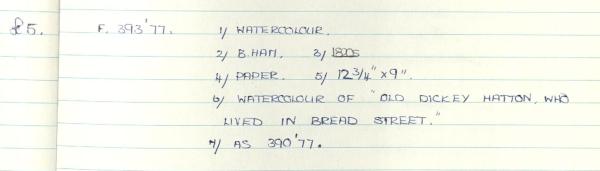 £5. F. 393'77. 1/ WATERCOLOUR.
2/ B.HAM. 3/ 1820s
4/ PAPER. 5/ 12 3/4" x 9".
6/ WATERCOLOUR OF "OLD DICKEY HATTON, WHO
LIVED IN BREAD STREET."
7/ AS 390'77.